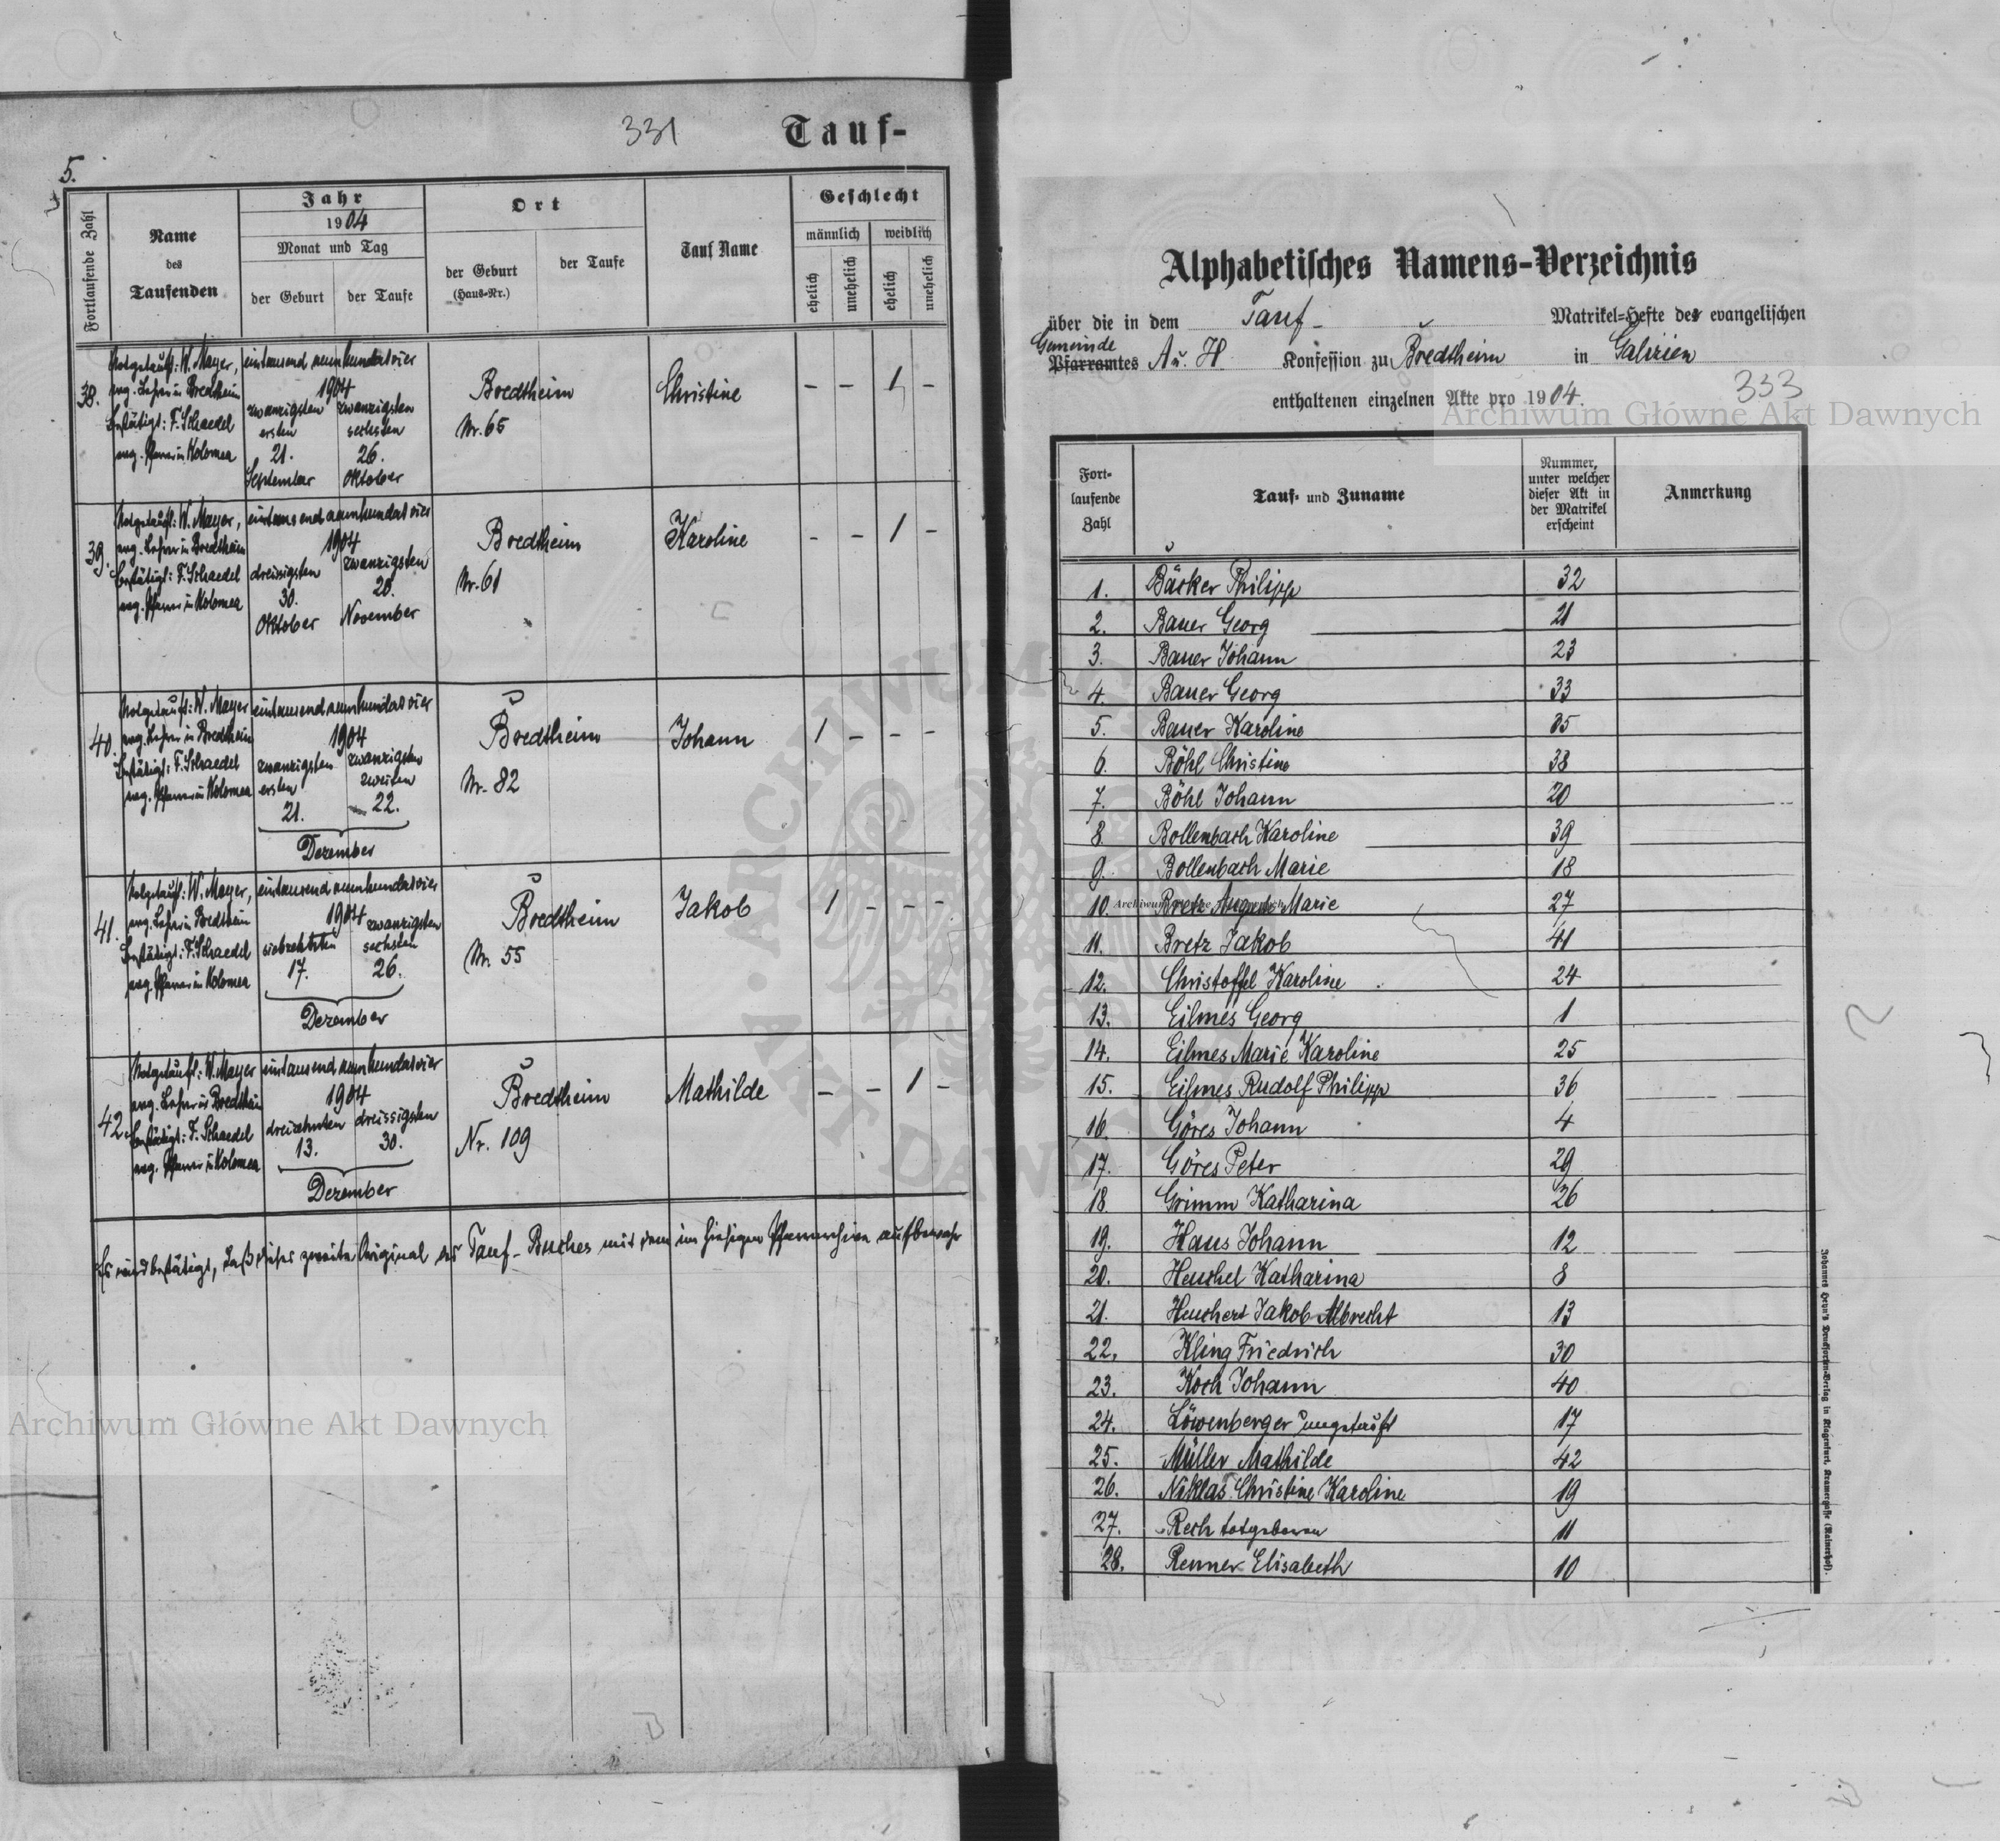 331
Tauf-
5.
Fortlaufende Zahl
Name
des
Taufenden
Jahr
1904
Monat und Tag
der Geburt
der Taufe
Ort
der Geburt
(Haus-Nr.)
der Taufe
Tauf Name
Geschlecht
männlich
weiblich
ehelich
unehelich
ehelich
unehelich
38.
Notgetauft: W. Mayer,
evg. Lehrer in Bredtheim
Bestätigt: F. Schaedel
evg. Pfarrer in Kolomea
eintausend neunhundertvier
1904
zwanzigsten zwanzigsten
ersten sechsten
21. 26.
September Oktober
Bredtheim
Nr. 65
Christine
– – 1 –
39.
Notgetauft: W. Mayer,
evg. Lehrer in Bredtheim
Bestätigt: F. Schaedel
evg. Pfarrer in Kolomea
eintausend neunhundertvier
1904
dreissigsten zwanzigsten
30. 20.
Oktober November
Bredtheim
Nr. 61
Karoline
– – 1 –
40.
Notgetauft: W. Mayer
evg. Lehrer in Bredtheim
Bestätigt: F. Schaedel
evg. Pfarrer in Kolomea
eintausend neunhundertvier
1904
zwanzigsten zwanzigsten
ersten zweiten
21. 22.
Dezember
Bredtheim
Nr. 82
Johann
1 – – –
41.
Notgetauft: W. Mayer,
evg. Lehrer in Bredtheim
Bestätigt: F. Schaedel
evg. Pfarrer in Kolomea
eintausend neunhundertvier
1904
siebzehnten zwanzigsten
sechsten
17. 26.
Dezember
Bredtheim
Nr. 55
Jakob
1 – – –
42.
Notgetauft: W. Mayer
evg. Lehrer in Bredtheim
Bestätigt: F. Schaedel
evg. Pfarrer in Kolomea
eintausend neunhundertvier
1904
dreizehnten dreissigsten
13. 30.
Dezember
Bredtheim
Nr. 109
Mathilde
– – 1 –
Es wird bestätigt, daß dieses zweite Original des Tauf-Buches mit dem im hiesigen Pfarrarchive aufbewahr
Archiwum Główne Akt Dawnych
Alphabetisches Namens-Verzeichnis
über die in dem Tauf- Matrikel-Hefte der evangelischen
Gemeinde
Pfarramtes A. u. H. Konfession zu Bredtheim in Galizien
enthaltenen einzelnen Akte pro 1904.
333
Archiwum Główne Akt Dawnych
Fort-
laufende
Zahl
Tauf- und Zuname
Nummer,
unter welcher
dieser Akt in
der Matrikel
erscheint
Anmerkung
1. Bäcker Philipp 32
2. Bauer Georg 21
3. Bauer Johann 23
4. Bauer Georg 33
5. Bauer Karoline 35
6. Böhl Christine 38
7. Böhl Johann 20
8. Bollenbach Karoline 39
9. Bollenbach Marie 18
10. Bretz Marie 27
11. Bretz Jakob 41
12. Christoffel Karoline 24
13. Eilmes Georg 1
14. Eilmes Marie Karoline 25
15. Eilmes Rudolf Philipp 36
16. Göres Johann 4
17. Göres Peter 29
18. Grimm Katharina 26
19. Haus Johann 12
20. Heuchel Katharina 8
21. Heuchert Jakob Albrecht 13
22. Kling Friedrich 30
23. Koch Johann 40
24. Löwenberger ungetauft 17
25. Müller Mathilde 42
26. Niklas Christine Karoline 19
27. Rech totgeboren 11
28. Renner Elisabeth 10